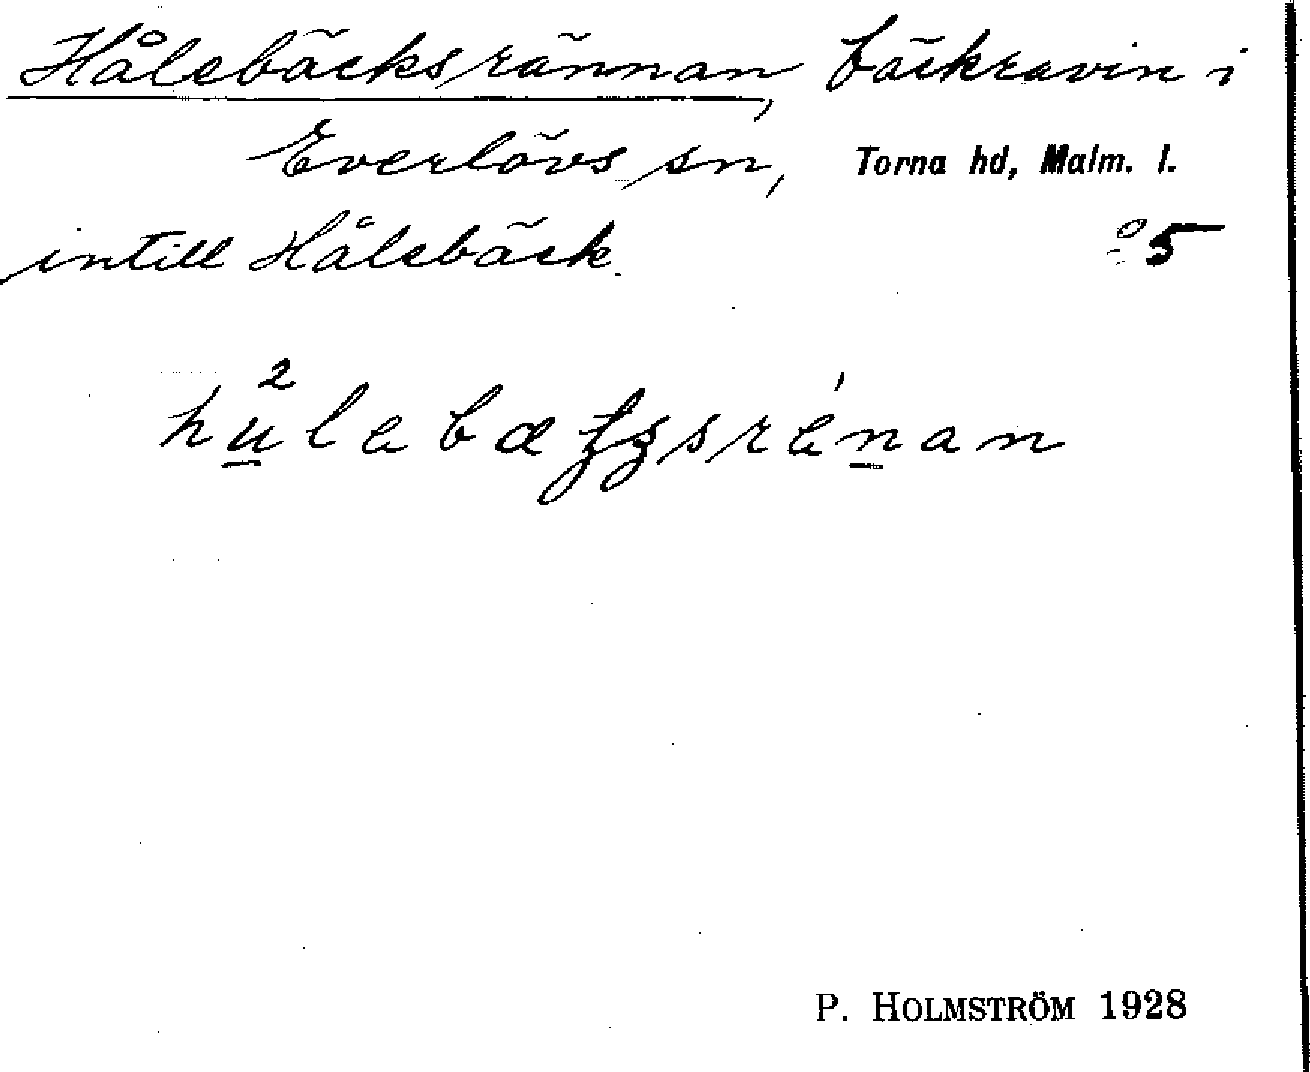 Hålebäcksrännan, bäckravin i
Everlövs sn, Torna hd, Malm. l.
intill Hålebäck. º5
P. HOLMSTRÖM 1928